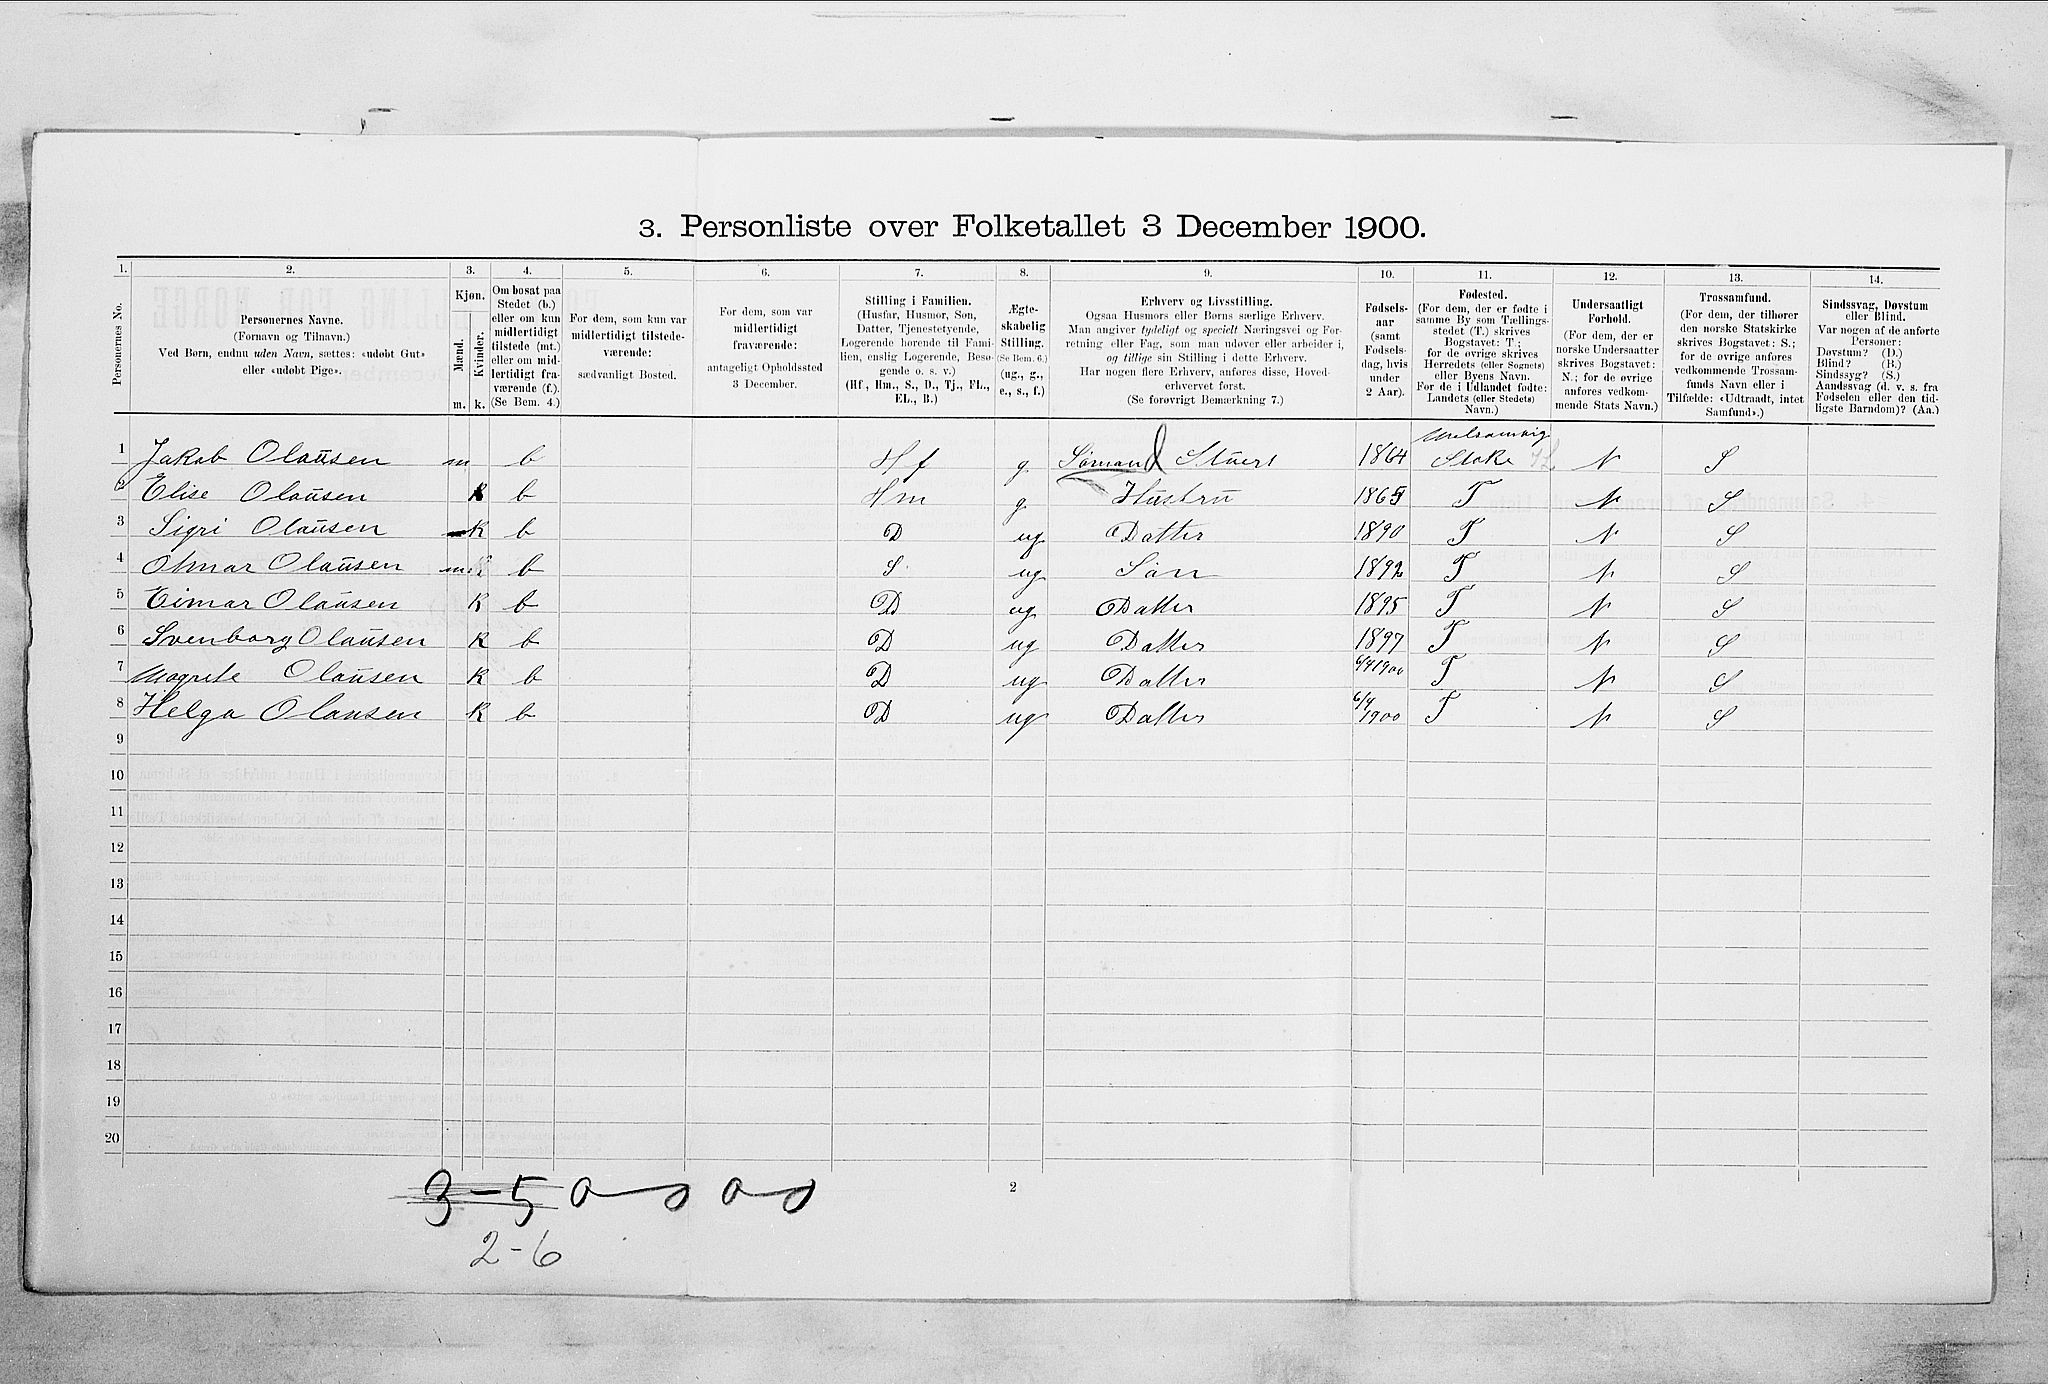 3. Personliste over Folketallet 3 December 1900.
1. 2. 3. 4. 5. 6. 7. 8. 9. 10. 11. 12. 13. 14.
Personernes No.
Personernes Navne.
(Fornavn og Tilnavn.)
Ved Børn, endnu uden Navn, sættes: «udøbt Gut»
eller «udøbt Pige».
Kjøn.
Mænd. Kvinder.
m. k.
Om bosat paa
Stedet (b.)
eller om kun
midlertidigt
tilstede (mt.)
eller om mid-
lertidigt fra-
værende (f.).
(Se Bem. 4.)
For dem, som kun var
midlertidigt tilstede-
værende:
sædvanligt Bosted.
For dem, som var
midlertidigt
fraværende:
antageligt Opholdssted
3 December.
Stilling i Familien.
(Husfar, Husmor, Søn,
Datter, Tjenestetyende,
Logerende hørende til Fami-
lien, enslig Logerende, Besø-
gende o. s. v.)
(Hf., Hm., S., D., Tj., FL.,
EL., B.)
Ægte-
skabelig
Stilling.
(Se Bem. 6.)
(ug., g.,
e., s., f.)
Erhverv og Livsstilling.
Ogsaa Husmors eller Børns særlige Erhverv.
Man angiver tydeligt og specielt Næringsvei og For-
retning eller Fag, som man udøver eller arbeider i,
og tillige sin Stilling i dette Erhverv.
Har nogen flere Erhverv, anføres disse, Hoved-
erhvervet først.
(Se forøvrigt Bemærkning 7.)
Fødsels-
aar
(samt
Fødsels-
dag, hvis
under
2 Aar).
Fødested.
(For dem, der er fødte i
samme By som Tællings-
stedet (T.) skrives
Bogstavet: T.;
for de øvrige skrives
Herredets (eller Sognets)
eller Byens Navn.
For de i Udlandet fødte:
Landets (eller Stedets)
Navn.)
Undersaatligt
Forhold.
(For dem, der er
norske Undersaatter
skrives Bogstavet:
N.; for de øvrige
anføres vedkom-
mende Stats Navn.)
Trossamfund.
(For dem, der tilhører
den norske Statskirke
skrives Bogstavet: S.;
for de øvrige anføres
vedkommende Trossam-
funds Navn eller i
Tilfælde: «Udtraadt, intet
Samfund».)
Sindssvag, Døvstum
eller Blind.
Var nogen af de anførte
Personer:
Døvstum? (D.)
Blind? (B.)
Sindssyg? (S.)
Aandssvag (d. v. s. fra
Fødselen eller den tid-
ligste Barndom)? (Aa.)
1 Jakob Olausen m b Hf g Sømand Stuert 1864 Stoke N S
2 Elise Olausen k b Hm g Hustru 1865 T N S
3 Sigri Olausen K b D ug Datter 1890 T N S
4 Otmar Olausen m b S ug Søn 1892 T N S
5 Eimar Olausen K b D ug Datter 1895 T N S
6 Svenborg Olausen K b D ug Datter 1897 T N S
7 Magrete Olausen K b D ug Datter 6/9 1900 T N S
8 Helga Olausen K b D ug Datter 6/9 1900 T N S
9
10
11
12
13
14
15
16
17
18
19
20
3-5 0-0 0-0
2
2-6